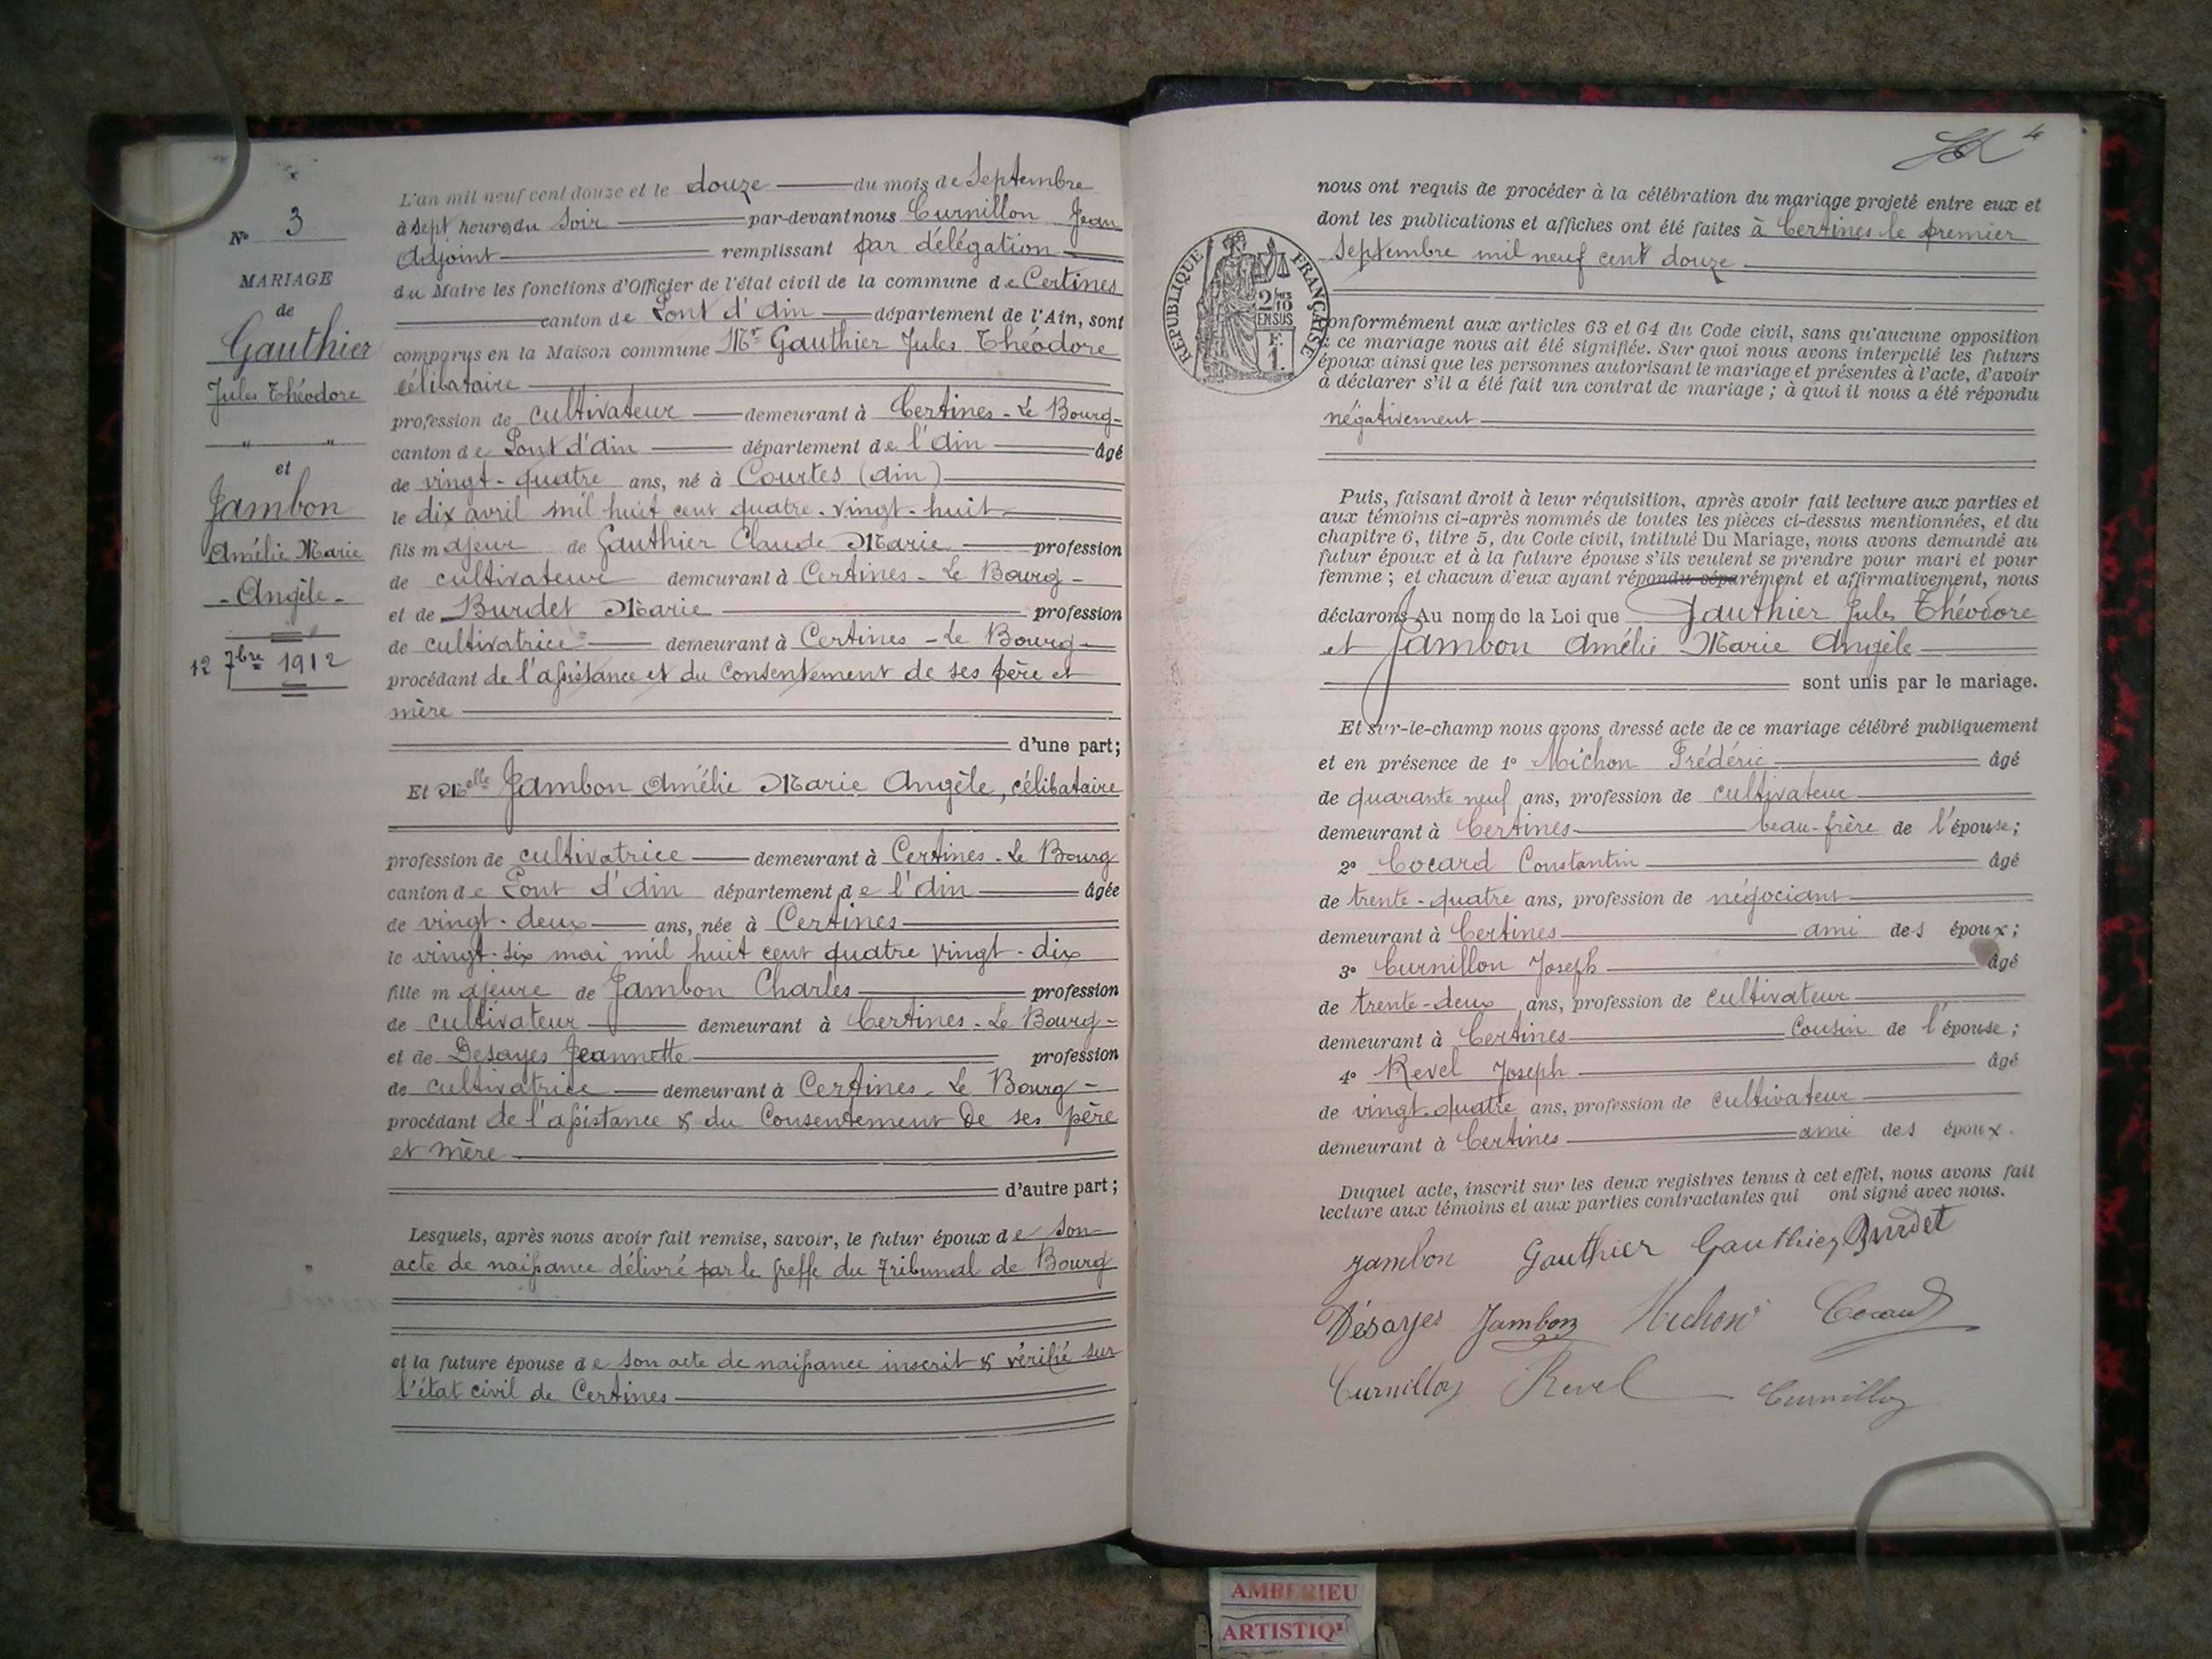 N° 3
MARIAGE
de
Gauthier
Jules Théodore
et
Jambon
Amélie Marie
- Angèle -
12 7bre 1912
L'an mil neuf cent douze et le douze du mois de Septembre
à sept heures du soir par-devant nous Curnillon Jean
Adjoint remplissant par délégation
du Maire les fonctions d'Officier de l'état civil de la commune de Certines
canton de Pont d'Ain département de l'Ain, sont
comparus en la Maison commune Mr Gauthier Jules Théodore
célibataire
profession de cultivateur demeurant à Certines - Le Bourg -
canton de Pont d'ain département de l'Ain âgé
de vingt-quatre ans, né à Courtes (ain)
le dix avril mil huit cent quatre-vingt-huit
fils majeur de Gauthier Claude Marie profession
de cultivateur demeurant à Certines - Le Bourg -
et de Burdet Marie profession
de cultivatrice demeurant à Certines - Le Bourg -
procédant de l'assistance et du consentement de ses père et
mère
d'une part;
Et Melle Jambon Amélie Marie Angèle, célibataire
profession de cultivatrice demeurant à Certines - Le Bourg
canton de Pont d'Ain département de l'Ain âgée
de vingt-deux ans, née à Certines
le vingt-six mai mil huit cent quatre vingt-dix
fille majeure de Jambon Charles profession
de cultivateur demeurant à Certines - Le Bourg -
et de Desayes Jeannette profession
de cultivatrice demeurant à Certines - Le Bourg -
procédant de l'assistance & du consentement de ses père
et mère
d'autre part;
Lesquels, après nous avoir fait remise, savoir, le futur époux de son
acte de naissance délivré par le greffe du Tribunal de Bourg
et la future épouse de son acte de naissance inscrit & vérifié sur
l'état civil de Certines
4
nous ont requis de procéder à la célébration du mariage projeté entre eux et
dont les publications et affiches ont été faites à Certines le premier
Septembre mil neuf cent douze
RÉPUBLIQUE FRANÇAISE
2/10
EN SUS
F.
1.
conformément aux articles 63 et 64 du Code civil, sans qu'aucune opposition
à ce mariage nous ait été signifiée. Sur quoi nous avons interpellé les futurs
époux ainsi que les personnes autorisant le mariage et présentes à l'acte, d'avoir
à déclarer s'il a été fait un contrat de mariage; à quoi il nous a été répondu
négativement
Puis, faisant droit à leur réquisition, après avoir fait lecture aux parties et
aux témoins ci-après nommés de toutes les pièces ci-dessus mentionnées, et du
chapitre 6, titre 5, du Code civil, intitulé Du Mariage, nous avons demandé au
futur époux et à la future épouse s'ils veulent se prendre pour mari et pour
femme; et chacun d'eux ayant répondu séparément et affirmativement, nous
déclarons Au nom de la Loi que Gauthier Jules Théodore
et Jambon Amélie Marie Angèle
sont unis par le mariage.
Et sur-le-champ nous avons dressé acte de ce mariage célébré publiquement
et en présence de 1° Michon Frédéric âgé
de quarante neuf ans, profession de cultivateur
demeurant à Certines beau-frère de l'épouse;
2° Cocard Constantin âgé
de trente-quatre ans, profession de négociant
demeurant à Certines ami des époux;
3° Curnillon Joseph âgé
de trente-deux ans, profession de cultivateur
demeurant à Certines Cousin de l'épouse;
4° Revel Joseph âgé
de vingt-quatre ans, profession de cultivateur
demeurant à Certines ami des époux.
Duquel acte, inscrit sur les deux registres tenus à cet effet, nous avons fait
lecture aux témoins et aux parties contractantes qui ont signé avec nous.
Jambon Gauthier Gauthier Burdet
Désayes Jambon Michon Cocard
Curnillon Revel Curnillon
AMBERIEU
ARTISTIQ